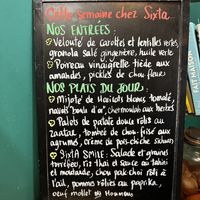 Cette semaine chez Sixta
NOS ENTREES:
Velouté de carottes et lentilles vertes,
granola salé gingembre, huile verte
Poireau vinaigrette tiède aux
amandes, pickles de chou fleur
NOS PLATS DU JOUR:
Mijoté de Haricots blancs, tomaté,
navets boule d'or, chermoulah aux herbes
Palets de patate douce rôtis au
zaatar, tombée de chou-frisé aux
agrumes, crème de pois-chiche
SIXTA SMILE: Salade et graines
torréfiées, riz thaï à la sauce au tahini
et moutarde, chou pak choï rôti à
l'ail, pommes rôties au paprika,
oeuf mollet